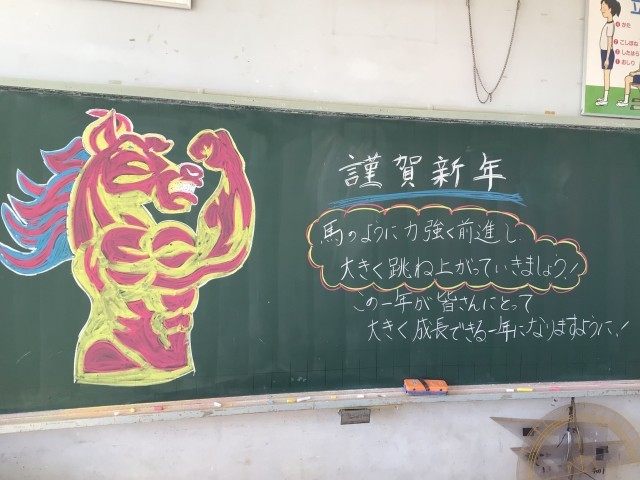 謹賀新年
馬のように力強く前進し
大きく跳ね上がっていきましょう!
この一年が皆さんにとって
大きく成長できる一年になりますように!
立
かた
こしぼね
したはら
おしり